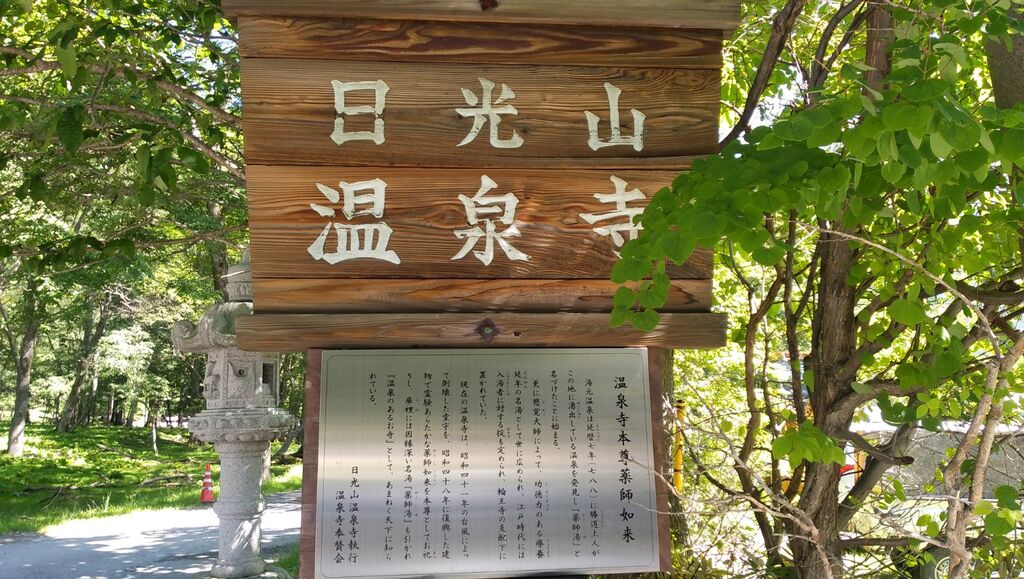 日光山
温泉寺
温泉寺本尊薬師如来
湯元温泉は延暦七年(七八八)に勝道上人が
この地に湧出している温泉を発見し『薬師湯』と
名づけたことに始まる。
更に慈覚大師によって、功徳力のある療養
延年の名湯として世に広められ、江戸時代には
入湯者に対する掟も定められ、輪王寺の支配下に
置かれていた。
現在の温泉寺は、昭和四十一年の台風によっ
て倒壊した堂宇を、昭和四十八年に復興した建
物で霊験あらたかな薬師如来を本尊としてお祀
りし、庫裡には因縁深い名湯『薬師湯』も引かれ
『温泉のあるお寺』として、あまねく天下に知ら
れている。
日光山温泉寺執行
温泉寺奉賛会